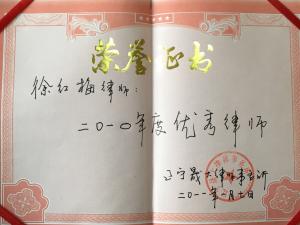 荣誉证书
徐红梅律师：
二〇一〇年度优秀律师
辽宁晟大律师事务所
二〇一一年二月七日